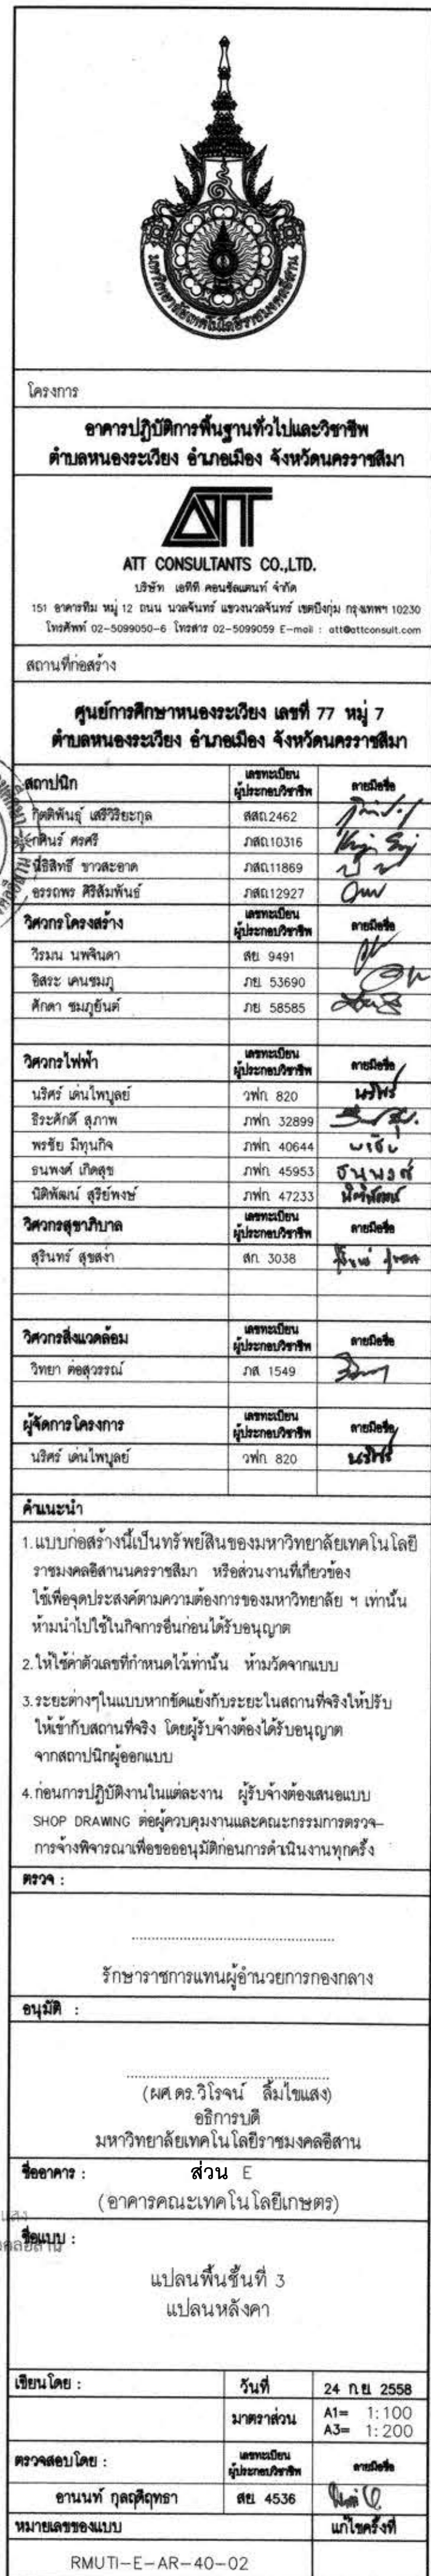 มหาวิทยาลัยเทคโนโลยีราชมงคลอีสาน
โครงการ
อาคารปฏิบัติการพื้นฐานทั่วไปและวิชาชีพ
ตำบลหนองระเวียง อำเภอเมือง จังหวัดนครราชสีมา
ATT
ATT CONSULTANTS CO.,LTD.
บริษัท เอทีที คอนซัลแตนท์ จำกัด
151 อาคารทีม หมู่ 12 ถนน นวลจันทร์ แขวงนวลจันทร์ เขตบึงกุ่ม กรุงเทพฯ 10230
โทรศัพท์ 02-5099050-6 โทรสาร 02-5099059 E-mail : att@attconsult.com
สถานที่ก่อสร้าง
ศูนย์การศึกษาหนองระเวียง เลขที่ 77 หมู่ 7
ตำบลหนองระเวียง อำเภอเมือง จังหวัดนครราชสีมา
สถาปนิก เลขทะเบียนผู้ประกอบวิชาชีพ ลายมือชื่อ
กิตติพันธุ์ เสรีวิริยะกุล สสถ.2462
คศินร์ ศรศรี ภสถ.10316
นิธิสิทธิ์ ขาวสะอาด ภสถ.11869
อรรถพร ศิริสัมพันธ์ ภสถ.12927
วิศวกรโครงสร้าง เลขทะเบียนผู้ประกอบวิชาชีพ ลายมือชื่อ
วิรมน นพจินดา สย. 9491
อิสระ เคนชมภู ภย. 53690
ศักดา ชมภูยันต์ ภย. 58585
วิศวกรไฟฟ้า เลขทะเบียนผู้ประกอบวิชาชีพ ลายมือชื่อ
นริศร์ เด่นไพบูลย์ วฟก. 820 นริศร์
ธิระศักดิ์ สุภาพ ภฟก. 32899
พรชัย มิทุนกิจ ภฟก. 40644
ธนพงศ์ เกิดสุข ภฟก. 45953 ธนพงศ์
นิติพัฒน์ สุรีย์พงษ์ ภฟก. 47233 นิติพัฒน์
วิศวกรสุขาภิบาล เลขทะเบียนผู้ประกอบวิชาชีพ ลายมือชื่อ
สุรินทร์ สุขสง่า สก. 3038
วิศวกรสิ่งแวดล้อม เลขทะเบียนผู้ประกอบวิชาชีพ ลายมือชื่อ
วิทยา ต่อสุวรรณ์ ภส. 1549
ผู้จัดการโครงการ เลขทะเบียนผู้ประกอบวิชาชีพ ลายมือชื่อ
นริศร์ เด่นไพบูลย์ วฟก. 820 นริศร์
คำแนะนำ
1. แบบก่อสร้างนี้เป็นทรัพย์สินของมหาวิทยาลัยเทคโนโลยี
ราชมงคลอีสานนครราชสีมา หรือส่วนงานที่เกี่ยวข้อง
ใช้เพื่อจุดประสงค์ตามความต้องการของมหาวิทยาลัย ฯ เท่านั้น
ห้ามนำไปใช้ในกิจการอื่นก่อนได้รับอนุญาต
2. ให้ใช้ค่าตัวเลขที่กำหนดไว้เท่านั้น ห้ามวัดจากแบบ
3. ระยะต่างๆในแบบหากขัดแย้งกับระยะในสถานที่จริงให้ปรับ
ให้เข้ากับสถานที่จริง โดยผู้รับจ้างต้องได้รับอนุญาต
จากสถาปนิกผู้ออกแบบ
4. ก่อนการปฏิบัติงานในแต่ละงาน ผู้รับจ้างต้องเสนอแบบ
SHOP DRAWING ต่อผู้ควบคุมงานและคณะกรรมการตรวจ-
การจ้างพิจารณาเพื่อขออนุมัติก่อนการดำเนินงานทุกครั้ง
ตรวจ :
รักษาราชการแทนผู้อำนวยการกองกลาง
อนุมัติ :
(ผศ.ดร.วิโรจน์ ลิ้มไขแสง)
อธิการบดี
มหาวิทยาลัยเทคโนโลยีราชมงคลอีสาน
ชื่ออาคาร : ส่วน E
(อาคารคณะเทคโนโลยีเกษตร)
ชื่อแบบ :
แปลนพื้นชั้นที่ 3
แปลนหลังคา
เขียนโดย : วันที่ 24 ก.ย. 2558
มาตราส่วน A1= 1:100
A3= 1:200
ตรวจสอบโดย : เลขทะเบียนผู้ประกอบวิชาชีพ ลายมือชื่อ
อานนท์ กุลฤดีฤทธา สย. 4536
หมายเลขของแบบ แก้ไขครั้งที่
RMUTI-E-AR-40-02